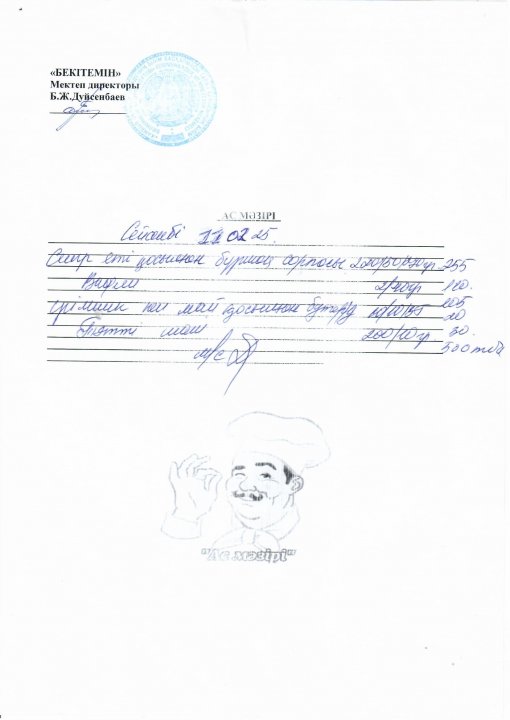 «БЕКІТЕМІН»
Мектеп директоры
Б.Ж.Дуйсенбаев
АС МӘЗІРІ
Сейсенбі 11 02 25.
Сиыр еті қосылған бұршақ сорпасы 255
Вафли 2/40гр 120.
ірімшік май қосылған бутерб 105
20
Тәтті шай 200/10гр 30.
530 тг
м/с
"Ас мәзірі"